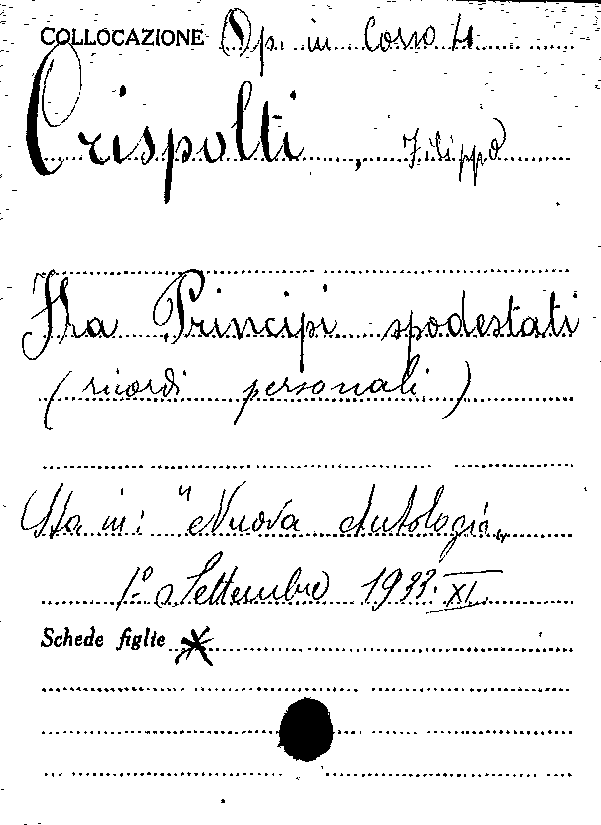 COLLOCAZIONE Op. in Corso 4
Crispolti, Filippo
Fra Principi spodestati
(ricordi personali)
Sta in: "Nuova Antologia"
1º Settembre 1933. XI.
Schede figlie